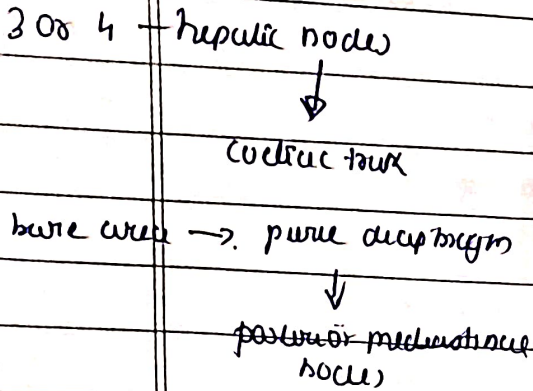 3 or 4 - hepatic nodes
↓
coeliac trunk
bare area → pierce diaphragm
↓
posterior mediastinal
nodes